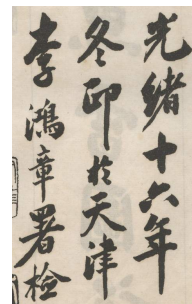 光緒十六年
冬印於天津
李鴻章署檢